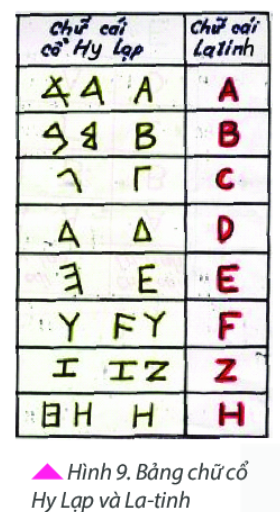 Chữ cái cổ Hy Lạp Chữ cái Latinh
A A
B B
Γ C
Δ Δ D
Ǝ E E
Y F Y F
I I Z Z
日 H H H
▲ Hình 9. Bảng chữ cổ
Hy Lạp và La-tinh